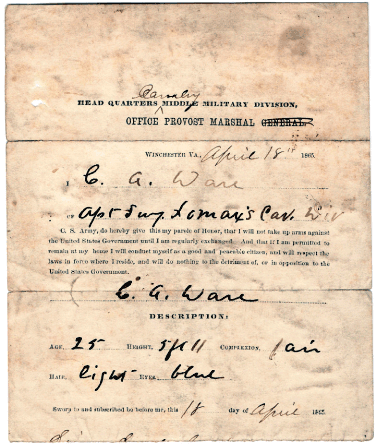 Cavalry
HEAD QUARTERS MIDDLE MILITARY DIVISION,
OFFICE PROVOST MARSHAL GENERAL,
WINCHESTER VA., April 18th 1865.
I C. A. Ware
of Apt Surg. Lomax's Cav. Div
C. S. Army, do hereby give this my parole of Honor, that I will not take up arms against
the United States Government until I am regularly exchanged. And that if I am permitted
to remain at my home I will conduct myself as a good and peaceable citizen, and will respect the
laws in force where I reside, and will do nothing to the detriment of, or in opposition to the
United States Government.
C. A. Ware
DESCRIPTION:
AGE, 25 HEIGHT, 5ft 11 COMPLEXION, fair
HAIR, light EYES, blue
Sworn to and subscribed to before me, this 18 day of April 1865.